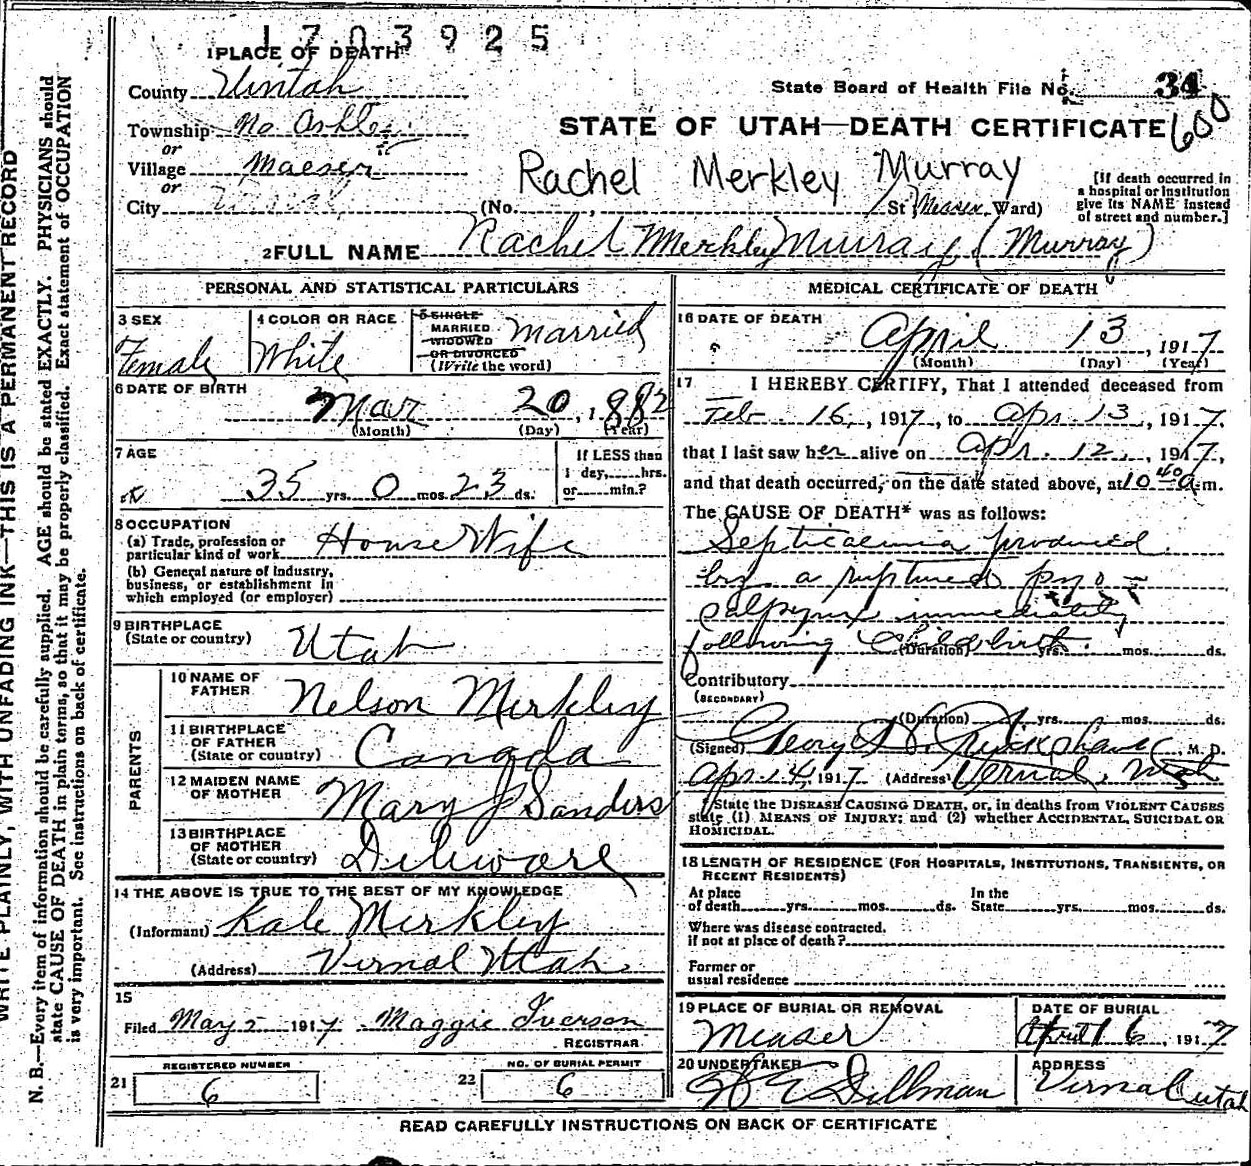 1703925
1 PLACE OF DEATH
County Uintah
State Board of Health File No. 34
Township No Ashley
STATE OF UTAH—DEATH CERTIFICATE 600
or
Village Maeser
Rachel Merkley Murray
or
City Vernal
(No. , St Measer Ward)
[If death occurred in
a hospital or institution
give its NAME instead
of street and number.]
2 FULL NAME Rachel Merkley Murray (Murray)
PERSONAL AND STATISTICAL PARTICULARS
3 SEX
Female
4 COLOR OR RACE
White
5 SINGLE
MARRIED
WIDOWED
OR DIVORCED
(Write the word)
Married
6 DATE OF BIRTH
Mar 20, 1882
(Month) (Day) (Year)
7 AGE
35 yrs. 0 mos. 23 ds.
If LESS than
1 day, hrs.
or min.?
8 OCCUPATION
(a) Trade, profession or
particular kind of work House Wife
(b) General nature of industry,
business, or establishment in
which employed (or employer)
9 BIRTHPLACE
(State or country) Utah
PARENTS
10 NAME OF
FATHER Nelson Merkley
11 BIRTHPLACE
OF FATHER
(State or country) Canada
12 MAIDEN NAME
OF MOTHER Mary J Sanders
13 BIRTHPLACE
OF MOTHER
(State or country) Diliware
14 THE ABOVE IS TRUE TO THE BEST OF MY KNOWLEDGE
(Informant) Merkley
(Address) Vernal Utah
15
Filed May 5 1917 Maggie Iverson
REGISTRAR
REGISTERED NUMBER
21 6
NO. OF BURIAL PERMIT
22 6
MEDICAL CERTIFICATE OF DEATH
16 DATE OF DEATH
April 13, 1917
(Month) (Day) (Year)
17 I HEREBY CERTIFY, That I attended deceased from
Feb 16, 1917, to Apr. 13, 1917,
that I last saw her alive on Apr. 12, 1917,
and that death occurred, on the date stated above, at 10 40 a.m.
The CAUSE OF DEATH* was as follows:
Septicaemia produced
by a ruptured pyo-
salpynx immediately
following Childbirth.
(Duration) yrs. mos. ds.
Contributory
(SECONDARY)
(Duration) yrs. mos. ds.
(Signed) George , M. D.
Apr. 14, 1917 (Address) Vernal, Utah
*State the DISEASE CAUSING DEATH, or, in deaths from VIOLENT CAUSES
state (1) MEANS OF INJURY; and (2) whether ACCIDENTAL, SUICIDAL OR
HOMICIDAL.
18 LENGTH OF RESIDENCE (FOR HOSPITALS, INSTITUTIONS, TRANSIENTS, OR
RECENT RESIDENTS)
At place
of death yrs. mos. ds.
In the
State yrs. mos. ds.
Where was disease contracted,
if not at place of death?
Former or
usual residence
19 PLACE OF BURIAL OR REMOVAL
Measer
DATE OF BURIAL
April 16, 1917
20 UNDERTAKER
Dillman
ADDRESS
Vernal Utah
READ CAREFULLY INSTRUCTIONS ON BACK OF CERTIFICATE
WRITE PLAINLY, WITH UNFADING INK—THIS IS A PERMANENT RECORD
N. B.—Every item of information should be carefully supplied. AGE should be stated EXACTLY. PHYSICIANS should
state CAUSE OF DEATH in plain terms, so that it may be properly classified. Exact statement of OCCUPATION
is very important. See instructions on back of certificate.